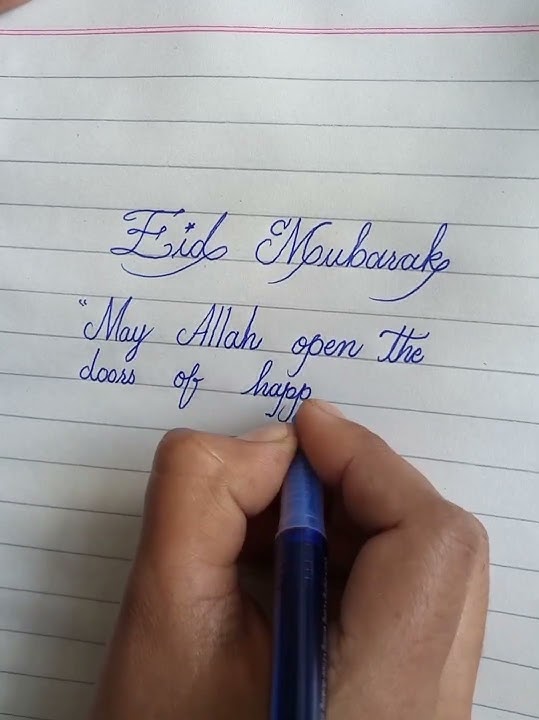 Eid Mubarak
"May Allah open the
doors of happ